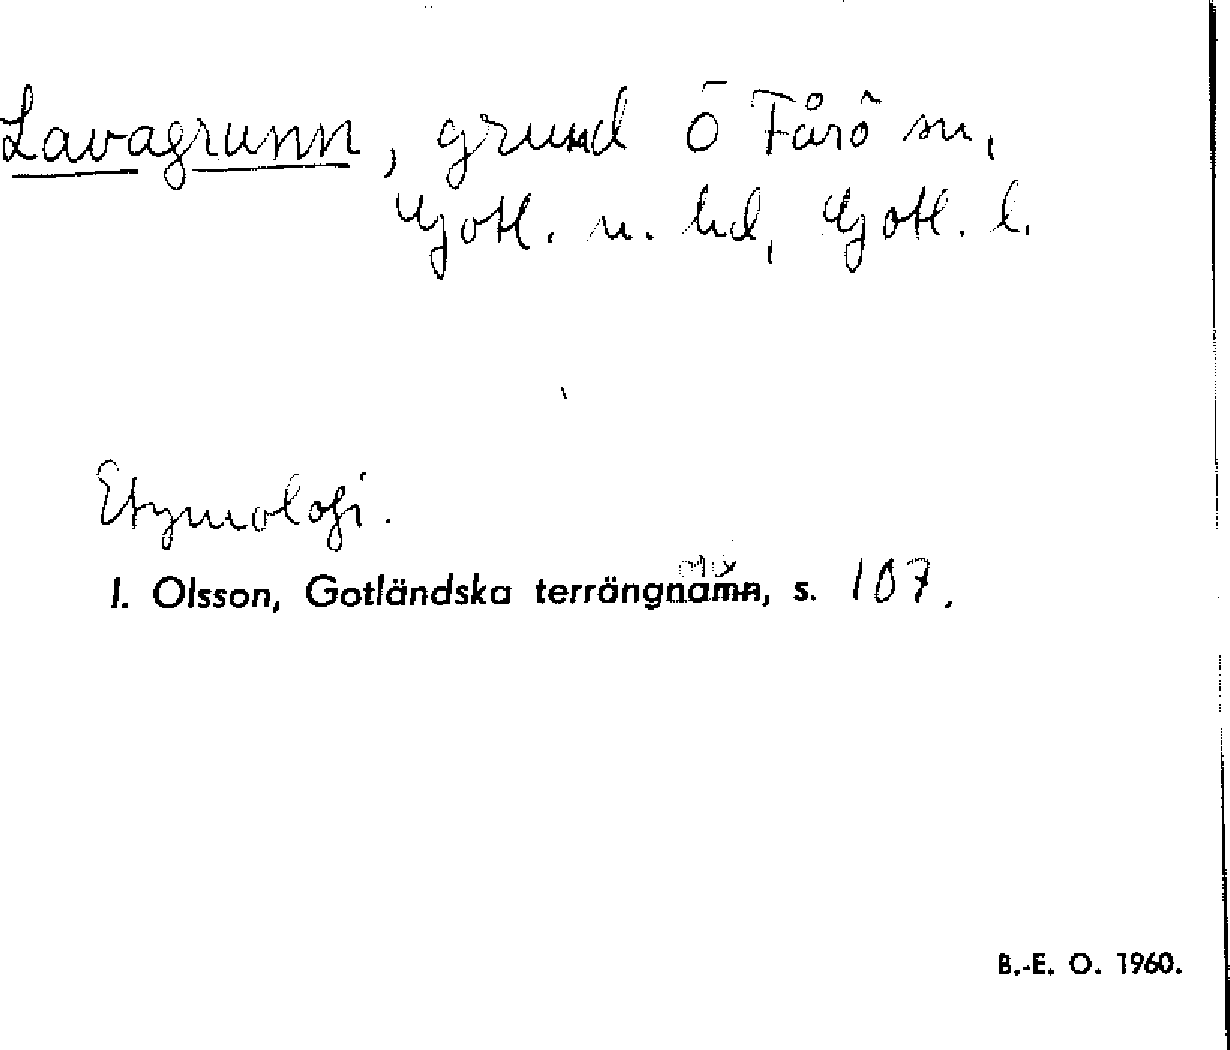 Lavagrunn, grund Ö Fårö sn,
Gotl. n. hd, Gotl. l.
Etymologi.
I. Olsson, Gotländska terrängnamn, s. 107.
B.-E. O. 1960.